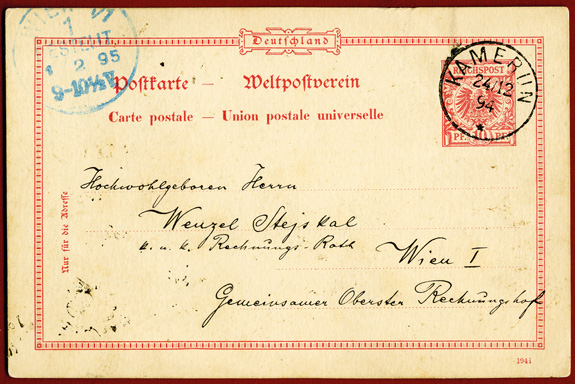 Deutschland
Postkarte — Weltpostverein
Carte postale — Union postale universelle
REICHSPOST
10
PF. PF.
KAMERUN
24/12
94
*
WIEN
1
BESTELLT
2 95
Nur für die Adresse
Hochwohlgeboren Herrn
Wenzel Stejskal
k. u. k. Rechnungs-Rath
Wien I
Gemeinsamer Oberster Rechnungshof
1941